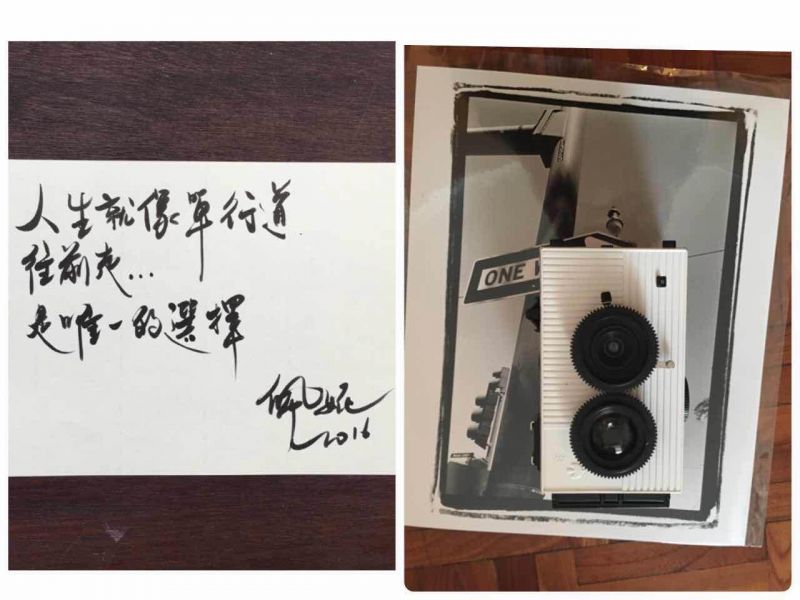 人生就像單行道
往前走...
是唯一的選擇
佩妮
2016
ONE W